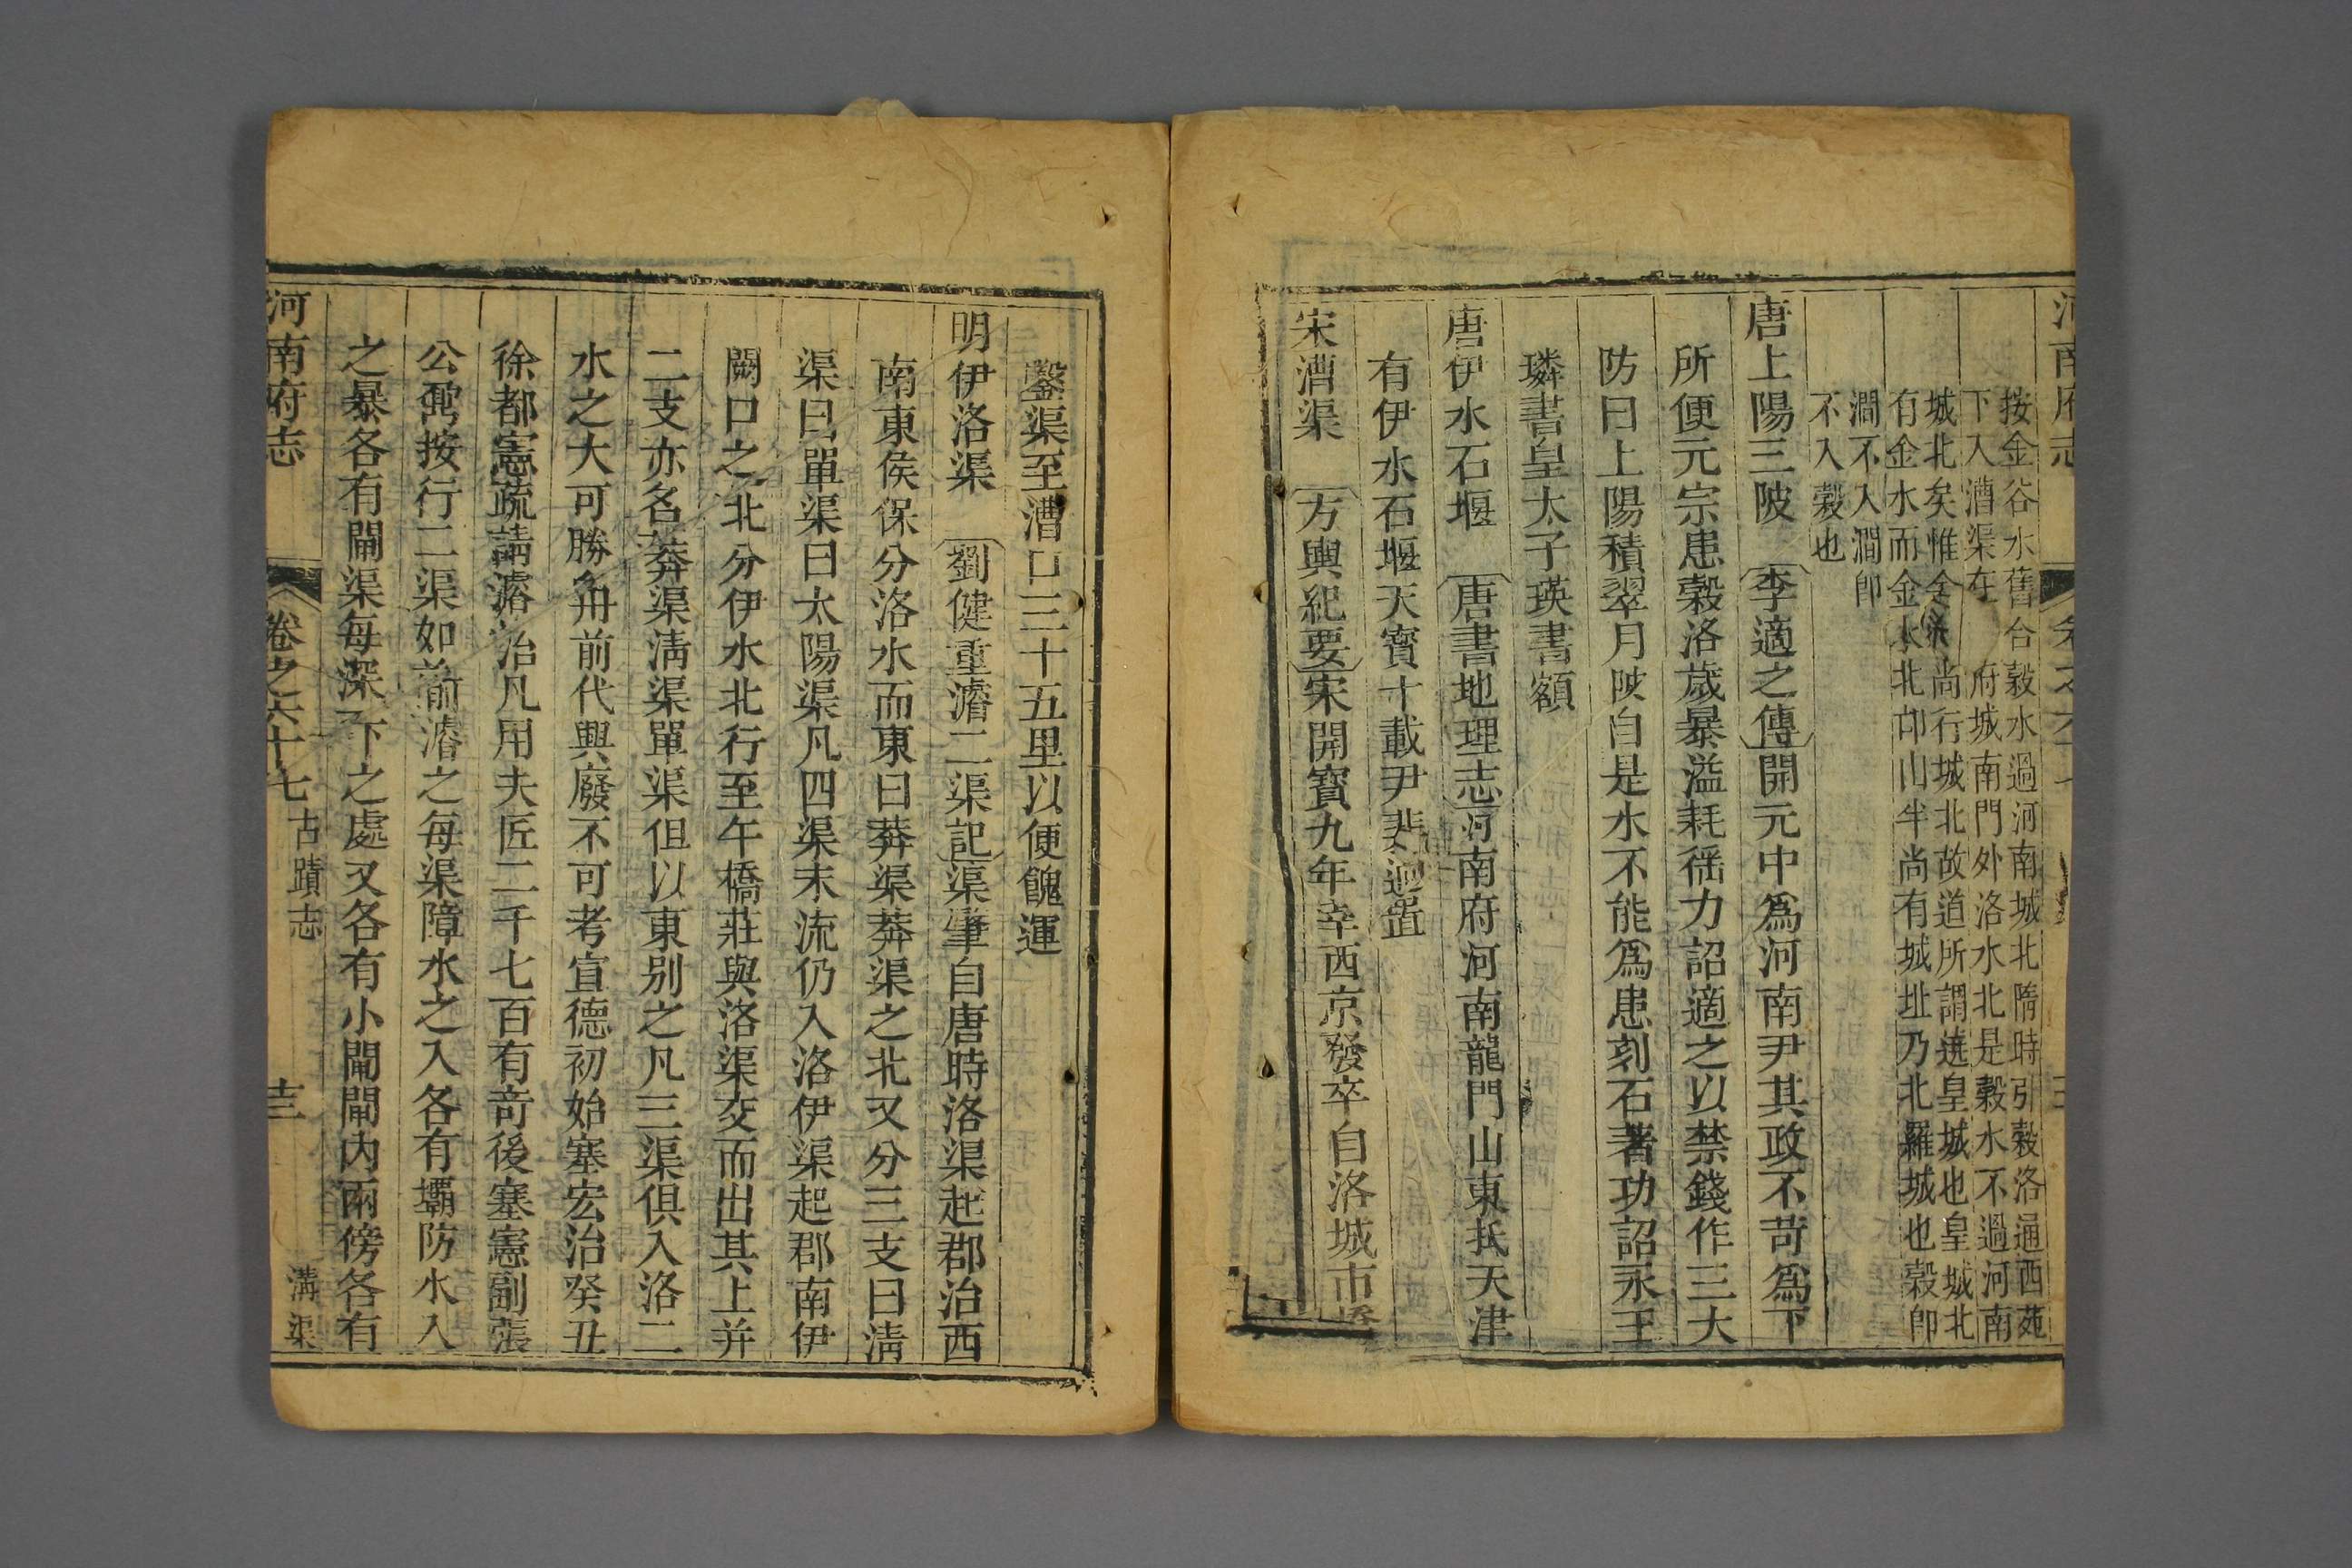 河南府志
按金谷水舊合穀水過河南城北隋時引穀洛通西苑
下入漕渠在 府城南門外洛水北是穀水不過河南
城北矣惟金水尚行城北故道所謂遶皇城也皇城北
有金水而金水北邙山半尚有城址乃北羅城也穀卽
澗不入澗卽
不入穀也
唐上陽三陂 李適之傳開元中爲河南尹其政不苛爲下
所便元宗患穀洛歲暴溢耗徭力詔適之以禁錢作三大
防曰上陽積翠月陂自是水不能爲患刻石著功詔永王
璘書皇太子瑛書額
唐伊水石堰 唐書地理志河南府河南龍門山東抵天津
有伊水石堰天寶十載尹裴迥置
宋漕渠 方輿紀要宋開寶九年幸西京發卒自洛城市橋
鑿渠至漕口三十五里以便餽運
明伊洛渠 劉健重濬二渠記渠肇自唐時洛渠起郡治西
南東侯保分洛水而東曰莽渠莽渠之北又分三支曰淸
渠曰單渠曰太陽渠凡四渠末流仍入洛伊渠起郡南伊
闕口之北分伊水北行至午橋莊與洛渠交而出其上并
二支亦名莽渠淸渠單渠但以東别之凡三渠俱入洛二
水之大可勝舟前代興廢不可考宣德初始塞宏治癸丑
徐都憲疏請濬治凡用夫匠二千七百有奇後塞憲副張
公鼐按行二渠如前濬之每渠障水之入各有壩防水入
之暴各有閘渠每深下之處又各有小閘閘內兩傍各有
河南府志 卷之六十七 古蹟志 溝渠 十三